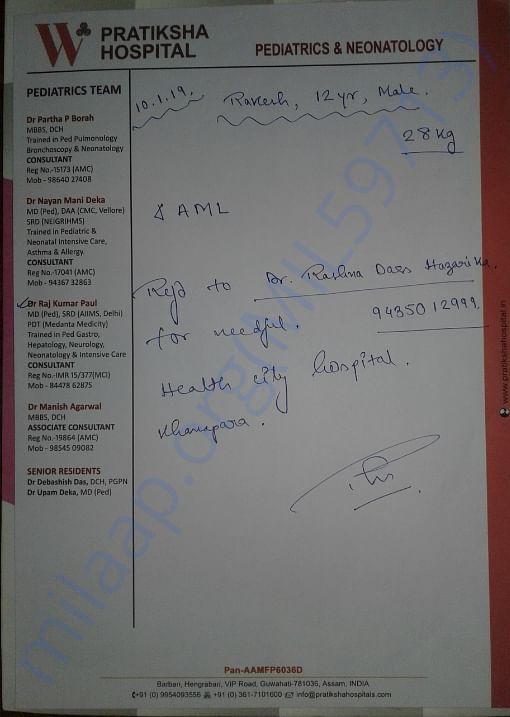 PRATIKSHA
HOSPITAL
PEDIATRICS & NEONATOLOGY
PEDIATRICS TEAM
Dr Partha P Borah
MBBS, DCH
Trained in Ped Pulmonology
Bronchoscopy & Neonatology
CONSULTANT
Reg No.-15173 (AMC)
Mob - 98640 27408
Dr Nayan Mani Deka
MD (Ped), DAA (CMC, Vellore)
SRD (NEIGRIHMS)
Trained in Pediatric &
Neonatal Intensive Care,
Asthma & Allergy.
CONSULTANT
Reg No.-17041 (AMC)
Mob - 94367 32863
Dr Raj Kumar Paul
MD (Ped), SRD (AIIMS, Delhi)
PDT (Medanta Medicity)
Trained in Ped Gastro,
Hepatology, Neurology,
Neonatology & Intensive Care
CONSULTANT
Reg No.-IMR 15/377(MCI)
Mob - 84478 62875
Dr Manish Agarwal
MBBS, DCH
ASSOCIATE CONSULTANT
Reg No.-19864 (AMC)
Mob - 98545 09082
SENIOR RESIDENTS
Dr Debashish Das, DCH, PGPN
Dr Upam Deka, MD (Ped)
10.1.19. Rakesh, 12yr, Male.
28 Kg
AML
to Dr. Hazarika.
for needful. 9435012999
Health city hospital.
Khanapara.
www.pratikshahospital.in
Pan-AAMFP6036D
Barbari, Hengrabari, VIP Road, Guwahati-781036, Assam, INDIA
+91 (0) 9954093556 +91 (0) 361-7101600 info@pratikshahospitals.com